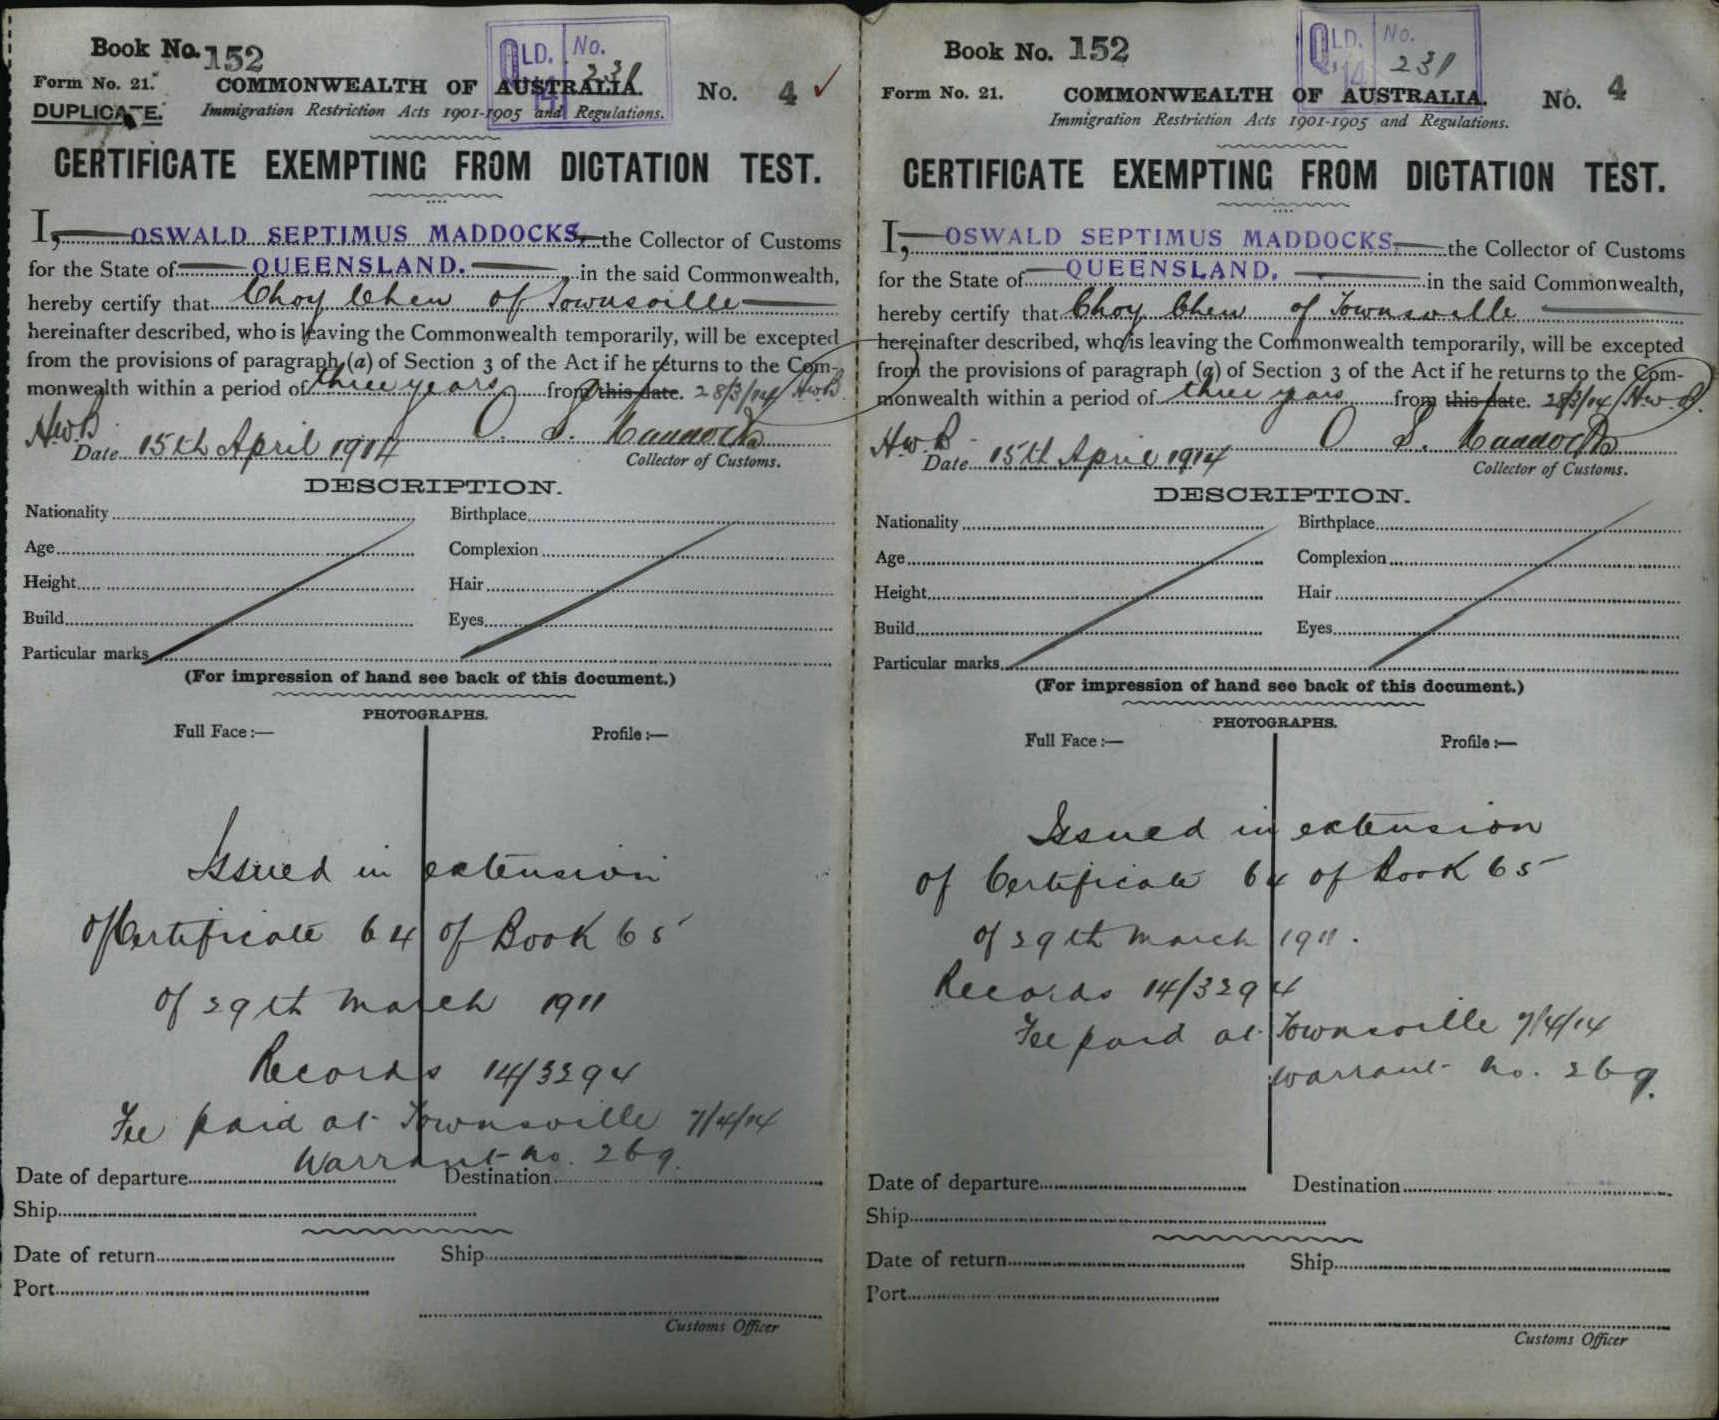 Book No. 152
Form No. 21.
DUPLICATE.
QLD. No.
14 231
COMMONWEALTH OF AUSTRALIA.
No. 4
Immigration Restriction Acts 1901-1905 and Regulations.
CERTIFICATE EXEMPTING FROM DICTATION TEST.
I, OSWALD SEPTIMUS MADDOCKS, the Collector of Customs
for the State of QUEENSLAND. in the said Commonwealth,
hereby certify that Choy Chew of Townsville
hereinafter described, who is leaving the Commonwealth temporarily, will be excepted
from the provisions of paragraph (a) of Section 3 of the Act if he returns to the Com-
monwealth within a period of three years from this date. 28/3/14 H.W.B.
H.W.B. O. S. Maddocks
Date 15th April 1914
Collector of Customs.
DESCRIPTION.
Nationality Birthplace
Age Complexion
Height Hair
Build Eyes
Particular marks
(For impression of hand see back of this document.)
PHOTOGRAPHS.
Full Face :— Profile :—
Issued in extension
of Certificate 64 of Book 65
of 29th March 1911
Records 14/3294
Fee paid at Townsville 7/4/14
Warrant no. 269.
Date of departure Destination
Ship
Date of return Ship
Port
Customs Officer
Book No. 152
Form No. 21.
QLD. No.
14 231
COMMONWEALTH OF AUSTRALIA.
No. 4
Immigration Restriction Acts 1901-1905 and Regulations.
CERTIFICATE EXEMPTING FROM DICTATION TEST.
I, OSWALD SEPTIMUS MADDOCKS, the Collector of Customs
for the State of QUEENSLAND. in the said Commonwealth,
hereby certify that Choy Chew of Townsville
hereinafter described, who is leaving the Commonwealth temporarily, will be excepted
from the provisions of paragraph (a) of Section 3 of the Act if he returns to the Com-
monwealth within a period of three years from this date. 28/3/14 H.W.B.
H.W.B. O. S. Maddocks
Date 15th April 1914
Collector of Customs.
DESCRIPTION.
Nationality Birthplace
Age Complexion
Height Hair
Build Eyes
Particular marks
(For impression of hand see back of this document.)
PHOTOGRAPHS.
Full Face :— Profile :—
Issued in extension
of Certificate 64 of Book 65
of 29th March 1911.
Records 14/3294
Fee paid at Townsville 7/4/14
Warrant no. 269.
Date of departure Destination
Ship
Date of return Ship
Port
Customs Officer